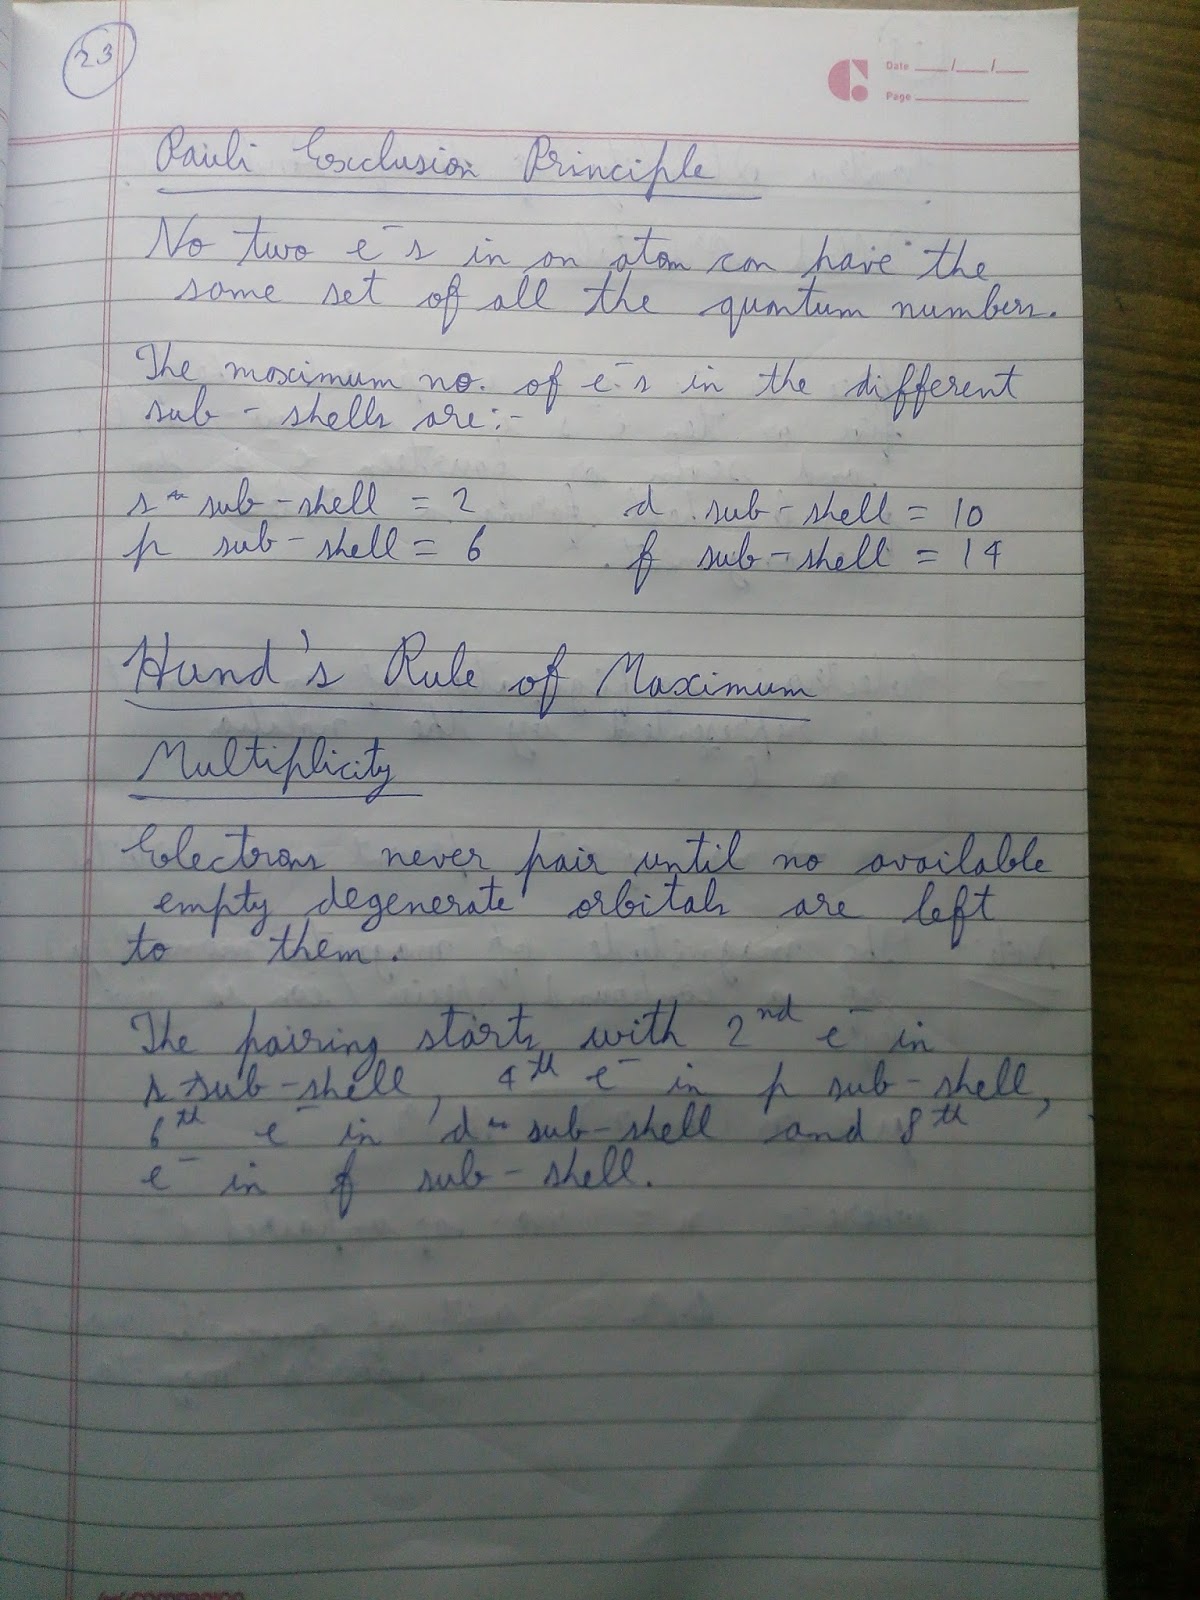 23
Date __/__/__
Page
Pauli Exclusion Principle
No two e⁻s in an atom can have the
same set of all the quantum numbers.
The maximum no. of e⁻s in the different
sub-shells are:-
s-sub-shell = 2 d sub-shell = 10
p sub-shell = 6 f sub-shell = 14
Hund's Rule of Maximum
Multiplicity
Electrons never pair until no available
empty degenerate orbitals are left
to them.
The pairing starts with 2nd e⁻ in
s-sub-shell, 4th e⁻ in p sub-shell,
6th e⁻ in d-sub-shell and 8th
e⁻ in f sub-shell.